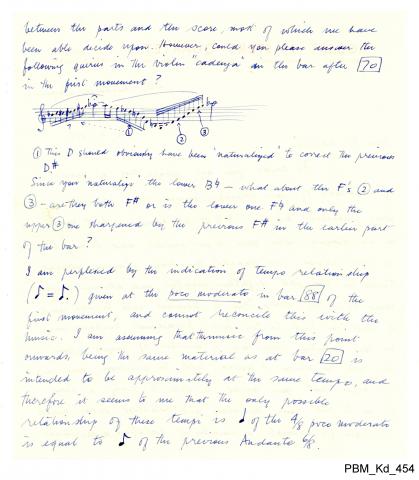 between the parts and the score, most of which we have
been able decide upon. However, could you please answer the
following queries in the violin "cadenza" in the bar after 70
in the first movement?
① ② ③
① This D should obviously have been 'naturalized' to correct the previous
D#
Since you 'naturalize' the lower B♮ – what about the F's ② and
③ – are they both F# or is the lower one F♮ and only the
upper ③ one sharpened by the previous F# in the earlier part
of the bar?
I am perplexed by the indication of tempo relationship
(♪ = ♪.) given at the poco moderato in bar 88 of the
first movement, and cannot reconcile this with the
music. I am assuming that the music from this point
onwards, being the same material as at bar 20 is
intended to be approximately at the same tempo, and
therefore it seems to me that the only possible
relationship of these tempi is ♩ of the 4/8 poco moderato
is equal to ♪ of the previous Andante 6/8.
PBM_Kd_454